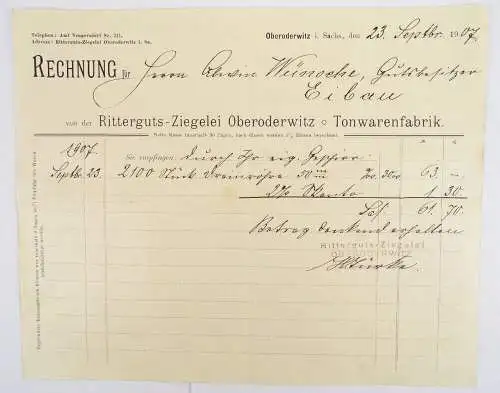 Telephon: Amt Neugersdorf Nr. 311.
Adresse: Ritterguts-Ziegelei Oberoderwitz i. Sa.
Oberoderwitz i. Sachs., den 23. Septbr. 1907.
RECHNUNG für Herrn Alwin Wünsche, Gutsbesitzer
Eibau
von der Ritterguts-Ziegelei Oberoderwitz Tonwarenfabrik.
Netto Kasse innerhalb 30 Tagen, nach diesen werden 5% Zinsen berechnet.
1907.
Sie empfingen: Durch Ihr eig. Geschirr:
Septbr. 23. 2100 Stück Drainrohre 50 mm 63 —
2% Skonto 1 30
61 70
Betrag dankend erhalten
Ritterguts-Ziegelei
OBERODERWITZ